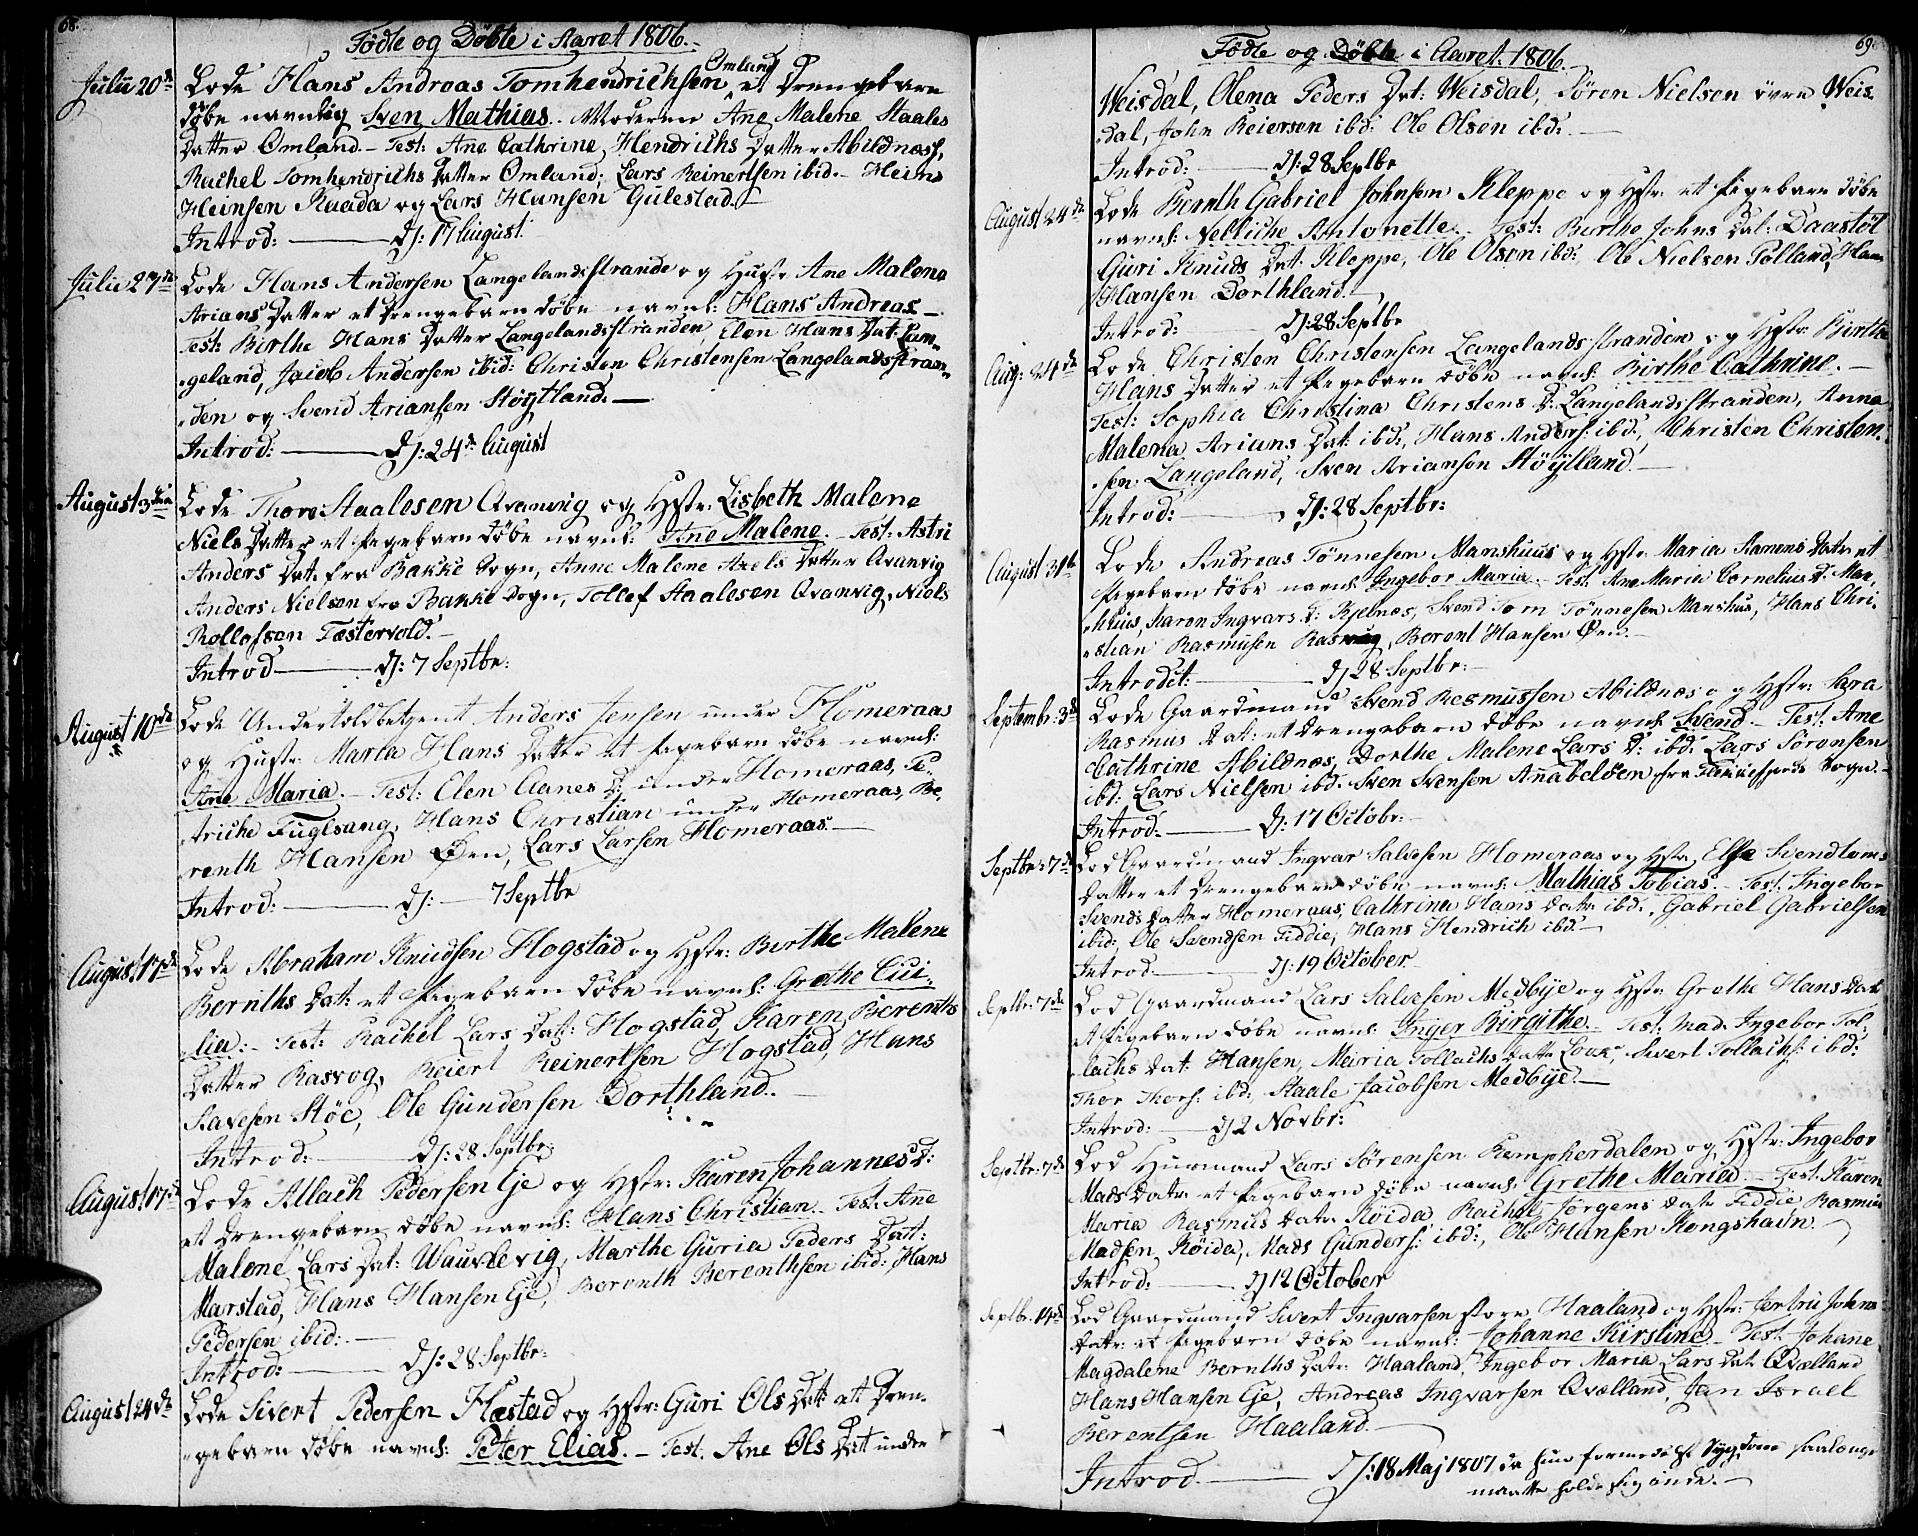 68.
Fødte og Døbte i Aaret 1806.
Julii 20de Lode Hans Andreas Tomhendrichsen Omland et Drengebarn
døbe navnlig Sven Mathias. Moderen Ane Malene Staales
Datter Omland. Test: Ane Cathrine Hendrichs Datter Abildnæss,
Rachel Tomhendrichs Datter Omland, Lars Reinertsen ibid. Heine
Heinsen Raada og Lars Hansen Gulestad.
Introd: D: 17 August.
Julii 27de Lode Hans Andersen Langelandsstrande og Hustr Ane Malena
Arians Datter et Drengebarn døbe navnl: Hans Andreas
Test: Birthe Hans Datter Langelandsstranden, Elen Hans Dat: Lan-
geland, Jacob Andersen ibid: Christen Christensen Langelandsstran-
den og Svend Ariansen Høytland.
Introd: D: 24de August
August 3die Lode Thore Staalesen Qvanvig og Hstr: Lisbeth Malene
Niels Datter et Pigebarn døbe navnl: Ane Malene. Test: Astri
Anders Dat. fra Bakke Sogn, Anne Malene Axels Datter Qvanvig
Anders Nielsen fra Bakke Sogn, Tollef Staalesen Qvanvig, Niels
Rollofsen Fæstervold.
Introd D: 7 Septbr:
August 10de Lode Undertoldbetjent Anders Jensen under Homeraas
og Hustr: Maria Hans Datter et Pigebarn døbe navnl:
Ane Maria. Test: Elen Aanes D: under Homeraas, Pe-
triche Fuglsang, Hans Christian under Homeraas, Be-
renth Hansen Øen, Lars Larsen Homeraas.
Introd: D: 7 Septbr
August 17de Lode Abraham Knudsen Hogstad og Hstr: Berthe Malene
Bernths Dat: et Pigebarn døbe navnl: Grethe Cici-
lia: Test: Rachel Lars Dat: Hogstad, Karen Berenths
Datter Rasvog, Reiert Reinertsen Hogstad, Hans
Savesen Støe, Ole Gundersen Dorthland.
Introd: D: 28 Septbr:
August 17de Lode Allach Pedersen Eje og Hstr: Karen Johannes D:
et Drengebarn døbe navnl: Hans Christian. Test: Ane
Malene Lars Dat: Waurlevig, Marthe Guria Peders Datt:
Marstad, Hans Hansen Eje, Berenth Berenthsen ibid: Hans
Pedersen ibid:
Introd: D: 28 Septbr:
August 24de Lode Sivert Pedersen Flæstad og Hstr: Guri Ols Datt et Dren-
gebarn døbe navnl: Peter Elias. Test. Ane Ols Datt under
69.
Fødte og Døbte i Aaret 1806.
Weisdal, Olena Peders Dat: Weisdal, Søren Nielsen övre Weis-
dal, John Reiersen ibd: Ole Olsen ibd:
Introd: D: 28 Septbr
August 24de Lode Bernth Gabriel Johnsen Kleppe og Hstr. et Pigebarn døbe
navnl: Nelliche Antonette. Test: Berthe Johns Dat: Daastöl
Guri Knuds Dat: Kleppe, Ole Olsen ibd: Ole Nielsen Polland, Hans
Hansen Dorthland.
Introd: D: 28 Septbr
Aug: 24de Lode Christen Christensen Langelandsstranden og Hstr: Birthe
Hans Datter et Pigebarn døbe navnl: Birthe Cathrine.
Test: Sophia Christina Christens D: Langelandsstranden, Anna
Malena Arians Dat: ibd:, Hans Anders: ibd:, Christen Christen-
sen Langeland, Sven Arianson Höytland.
Introd: D: 28 Septbr:
August 31te Lode Andreas Tönnesen Manshuus og Hstr Maria Aamens Datr et
Pigebarn døbe navnl: Ingebor Maria. Test. Ane Maria Cornelius D: Mans-
huus, Karen Ingvars D: Kjelnæs, Svend Tom Tönnesen Manshuus, Hans Chri-
stian Rasmusen Rasvaag, Berent Hansen Øen
Introdct: D 28 Septbr:
Septembr: 3de Lode Gaardmand Svend Rasmussen Abildnæs og Hstr: Sara
Rasmus Dat: et Drengebarn döbe navnl: Svend. Test: Ane
Cathrine Abildnæs, Dorthe Malene Lars D: ibd: Lars Sörensen
ibd: Lars Nielsen ibd. Sven Svensen Anabelöen fra Fleckefjords Sogn.
Introd: D: 17 Octobr:
Septbr: 7de Lod Gaardmand Ingvar Salvesen Homeraas og Hstr Else Svendtoms
Datter et Drengebarn döbe navnl: Mathias Tobias. Test. Ingebor
Svends Datter Homeraas, Cathrina Hans Datr ibd:, Gabriel Gabrielsen
ibid, Ole Svendsen Fiddie, Hans Hendrich ibd.
Introd. D: 19 October
Septbr: 7de Lod Gaardmand Lars Salvesen Medbye og Hstr Grethe Hans Datr
et Pigebarn døbe navnl: Inger Birgithe. Test: Mad. Ingebor Tol-
lachs Dat: Hansen, Maria Tollachs Datter, Sivert Tollachs: ibd:
Thor Thors: ibd, Staale Jacobsen Medbye.
Introd: D 2 Novbr:
Septbr: 7de Lod Huusmand Lars Sörensen Kempherdalen og Hstr: Ingebor
Mads Datr: et Pigebarn döbe navnl: Grethe Maria. Test. Karen
Maria Rasmus Datr Röida, Rachel Jörgens Datr Fiddie, Rasmus
Madsen Röida, Mads Gunders: ibd:, Ole Hansen Kongshavn.
Introd: D 12 October
Septbr. 14de Lod Gaardmand Sivert Ingvarsen store Haaland og Hstr: Jertru Johns
Datr: et Pigebarn döbe navnl: Johanne Kirstine. Test. Johane
Magdalene Bernths Datr: Haaland, Ingebor Maria Lars Dat Qvælland
Hans Hansen Eje, Andreas Ingvarsen Qvælland, Jan Israel
Berentsen Haaland.
Introd. D: 18 Maj 1807 da hun formedelst Sygdom saalænge
maatte holde sig inde.